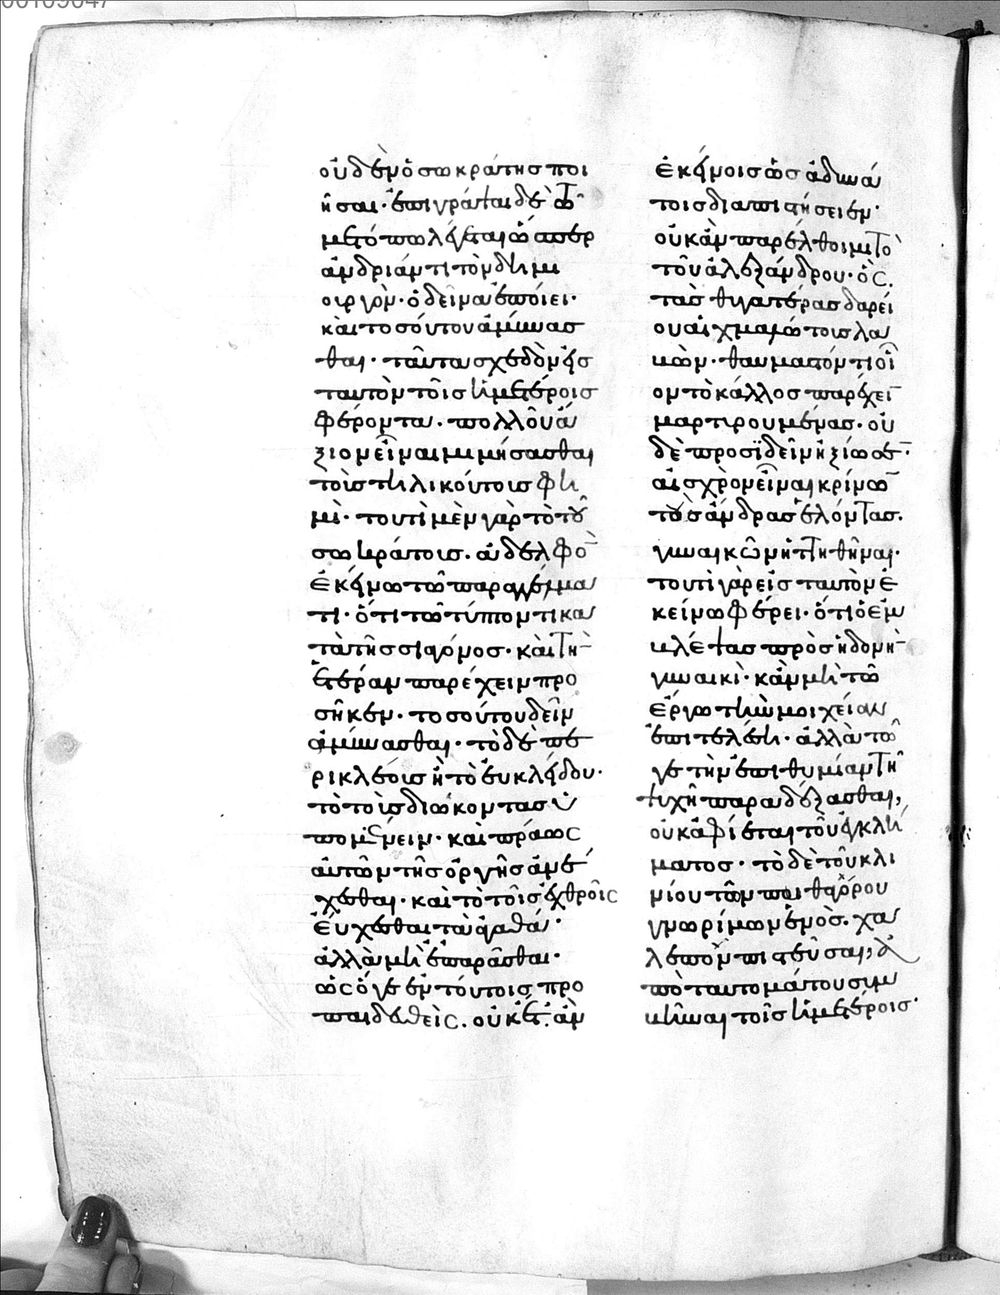 οὐδὲν ὁ σωκράτης ποι
ῆσαι· ἐπιγράψαι δὲ τῶ
μετόπω λέγεται ὥσπερ
ἀνδριάντι τὸν δημι
ουργὸν· ὁ δεῖνα ἐποίει·
καὶ τοσοῦτον ἀμύνασ
θαι· ταῦτα σχεδὸν εἰς
ταυτὸν τοῖς ἡμετέροις
φέροντα· πολλοῦ ἄ
ξιον εἶναι μιμήσασθαι
τοὺς τηλικούτους φη
μὶ· τουτὶ μὲν γὰρ τὸ τοῦ
σωκράτους· ἀδελφὸν
ἐκείνω τῶ παραγγέλμα
τι· ὅτι τῶ τύπτοντι κα
τὰ τῆς σιαγόνος· καὶ τὴν
ἑτέραν παρέχειν προ
σῆκεν· τοσούτου δεῖν
ἀμύνασθαι· τὸ δὲ πε
ρικλέους ἢ τὸ εὐκλείδου·
τὸ τοὺς διώκοντας ὑ
πομένειν· καὶ πράως
αὐτῶν τῆς ὀργῆς ἀνέ
χεσθαι· καὶ τὸ τοῖς ἐχθροῖς
εὔχεσθαι τὰ ἀγαθά·
ἀλλὰ μὴ ἐπαρᾶσθαι·
ὡς ὅγε ἐν τούτοις προ
παιδευθεὶς. οὐκέτ' ἂν
ἐκείνοις ὡς ἀδυνά
τοις διαπιστήσειεν·
οὐκ ἂν παρέλθοιμι τὸ
τοῦ ἀλεξάνδρου· ὃς
τὰς θυγατέρας δαρεί
ου αἰχμαλώτους λα
βὼν· θαυμαστόν τι οἷ
ον τὸ κάλλος παρέχειν
μαρτυρουμένας· οὐ
δὲ προσϊδεῖν ἠξίωσεν·
αἰσχρὸν εἶναι κρίνων
τοὺς ἄνδρας ἑλόντας.
γυναικῶν ἡττηθῆναι·
τουτὶ γὰρ εἰς ταυτὸν ἐ
κείνω φέρει· ὅτι ὁ ἐμ
βλέψας πρὸς ἡδονὴν
γυναικὶ· κἂν μὴ τῶ
ἔργω τὴν μοιχείαν
ἐπιτελέση· ἀλλὰ τῶ
γε τὴν ἐπιθυμίαν τῆ
ψυχῆ παραδέξασθαι,
οὐκ ἀφίεται τοῦ ἐγκλή
ματος· τὸ δὲ τοῦ κλι
νίου τῶν πυθαγόρου
γνωρίμων ἑνὸς. χα
λεπὸν πιστεῦσαι, ἀ
πὸ ταυτομάτου συμ
βῆναι τοῖς ἡμετέροις·